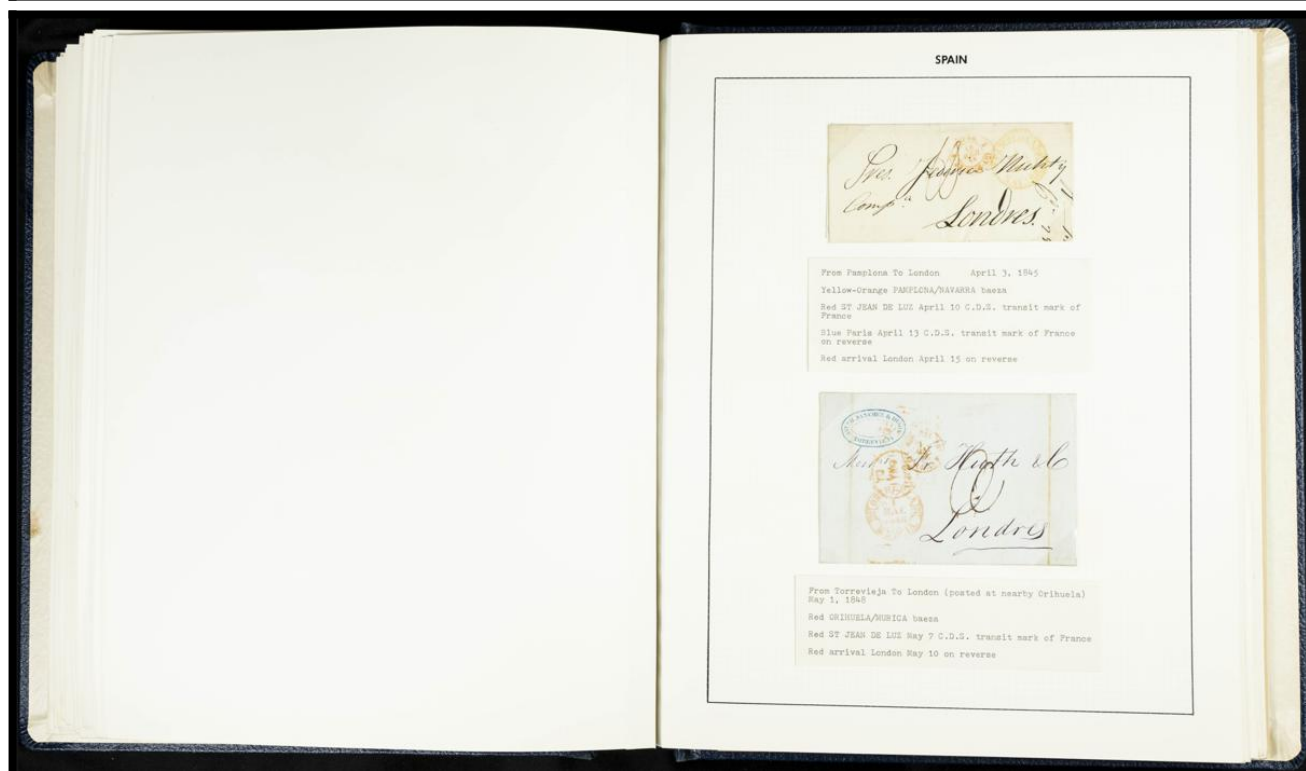 SPAIN
Londres.
From Pamplona To London April 3, 1845
Yellow-Orange PAMPLONA/NAVARRA baeza
Red ST JEAN DE LUZ April 10 C.D.S. transit mark of
France
Blue Paris April 13 C.D.S. transit mark of France
on reverse
Red arrival London April 15 on reverse
Fr Huth & C
Londres
From Torrevieja To London (posted at nearby Orihuela)
May 1, 1848
Red ORIHUELA/MURICA baeza
Red ST JEAN DE LUZ May 7 C.D.S. transit mark of France
Red arrival London May 10 on reverse